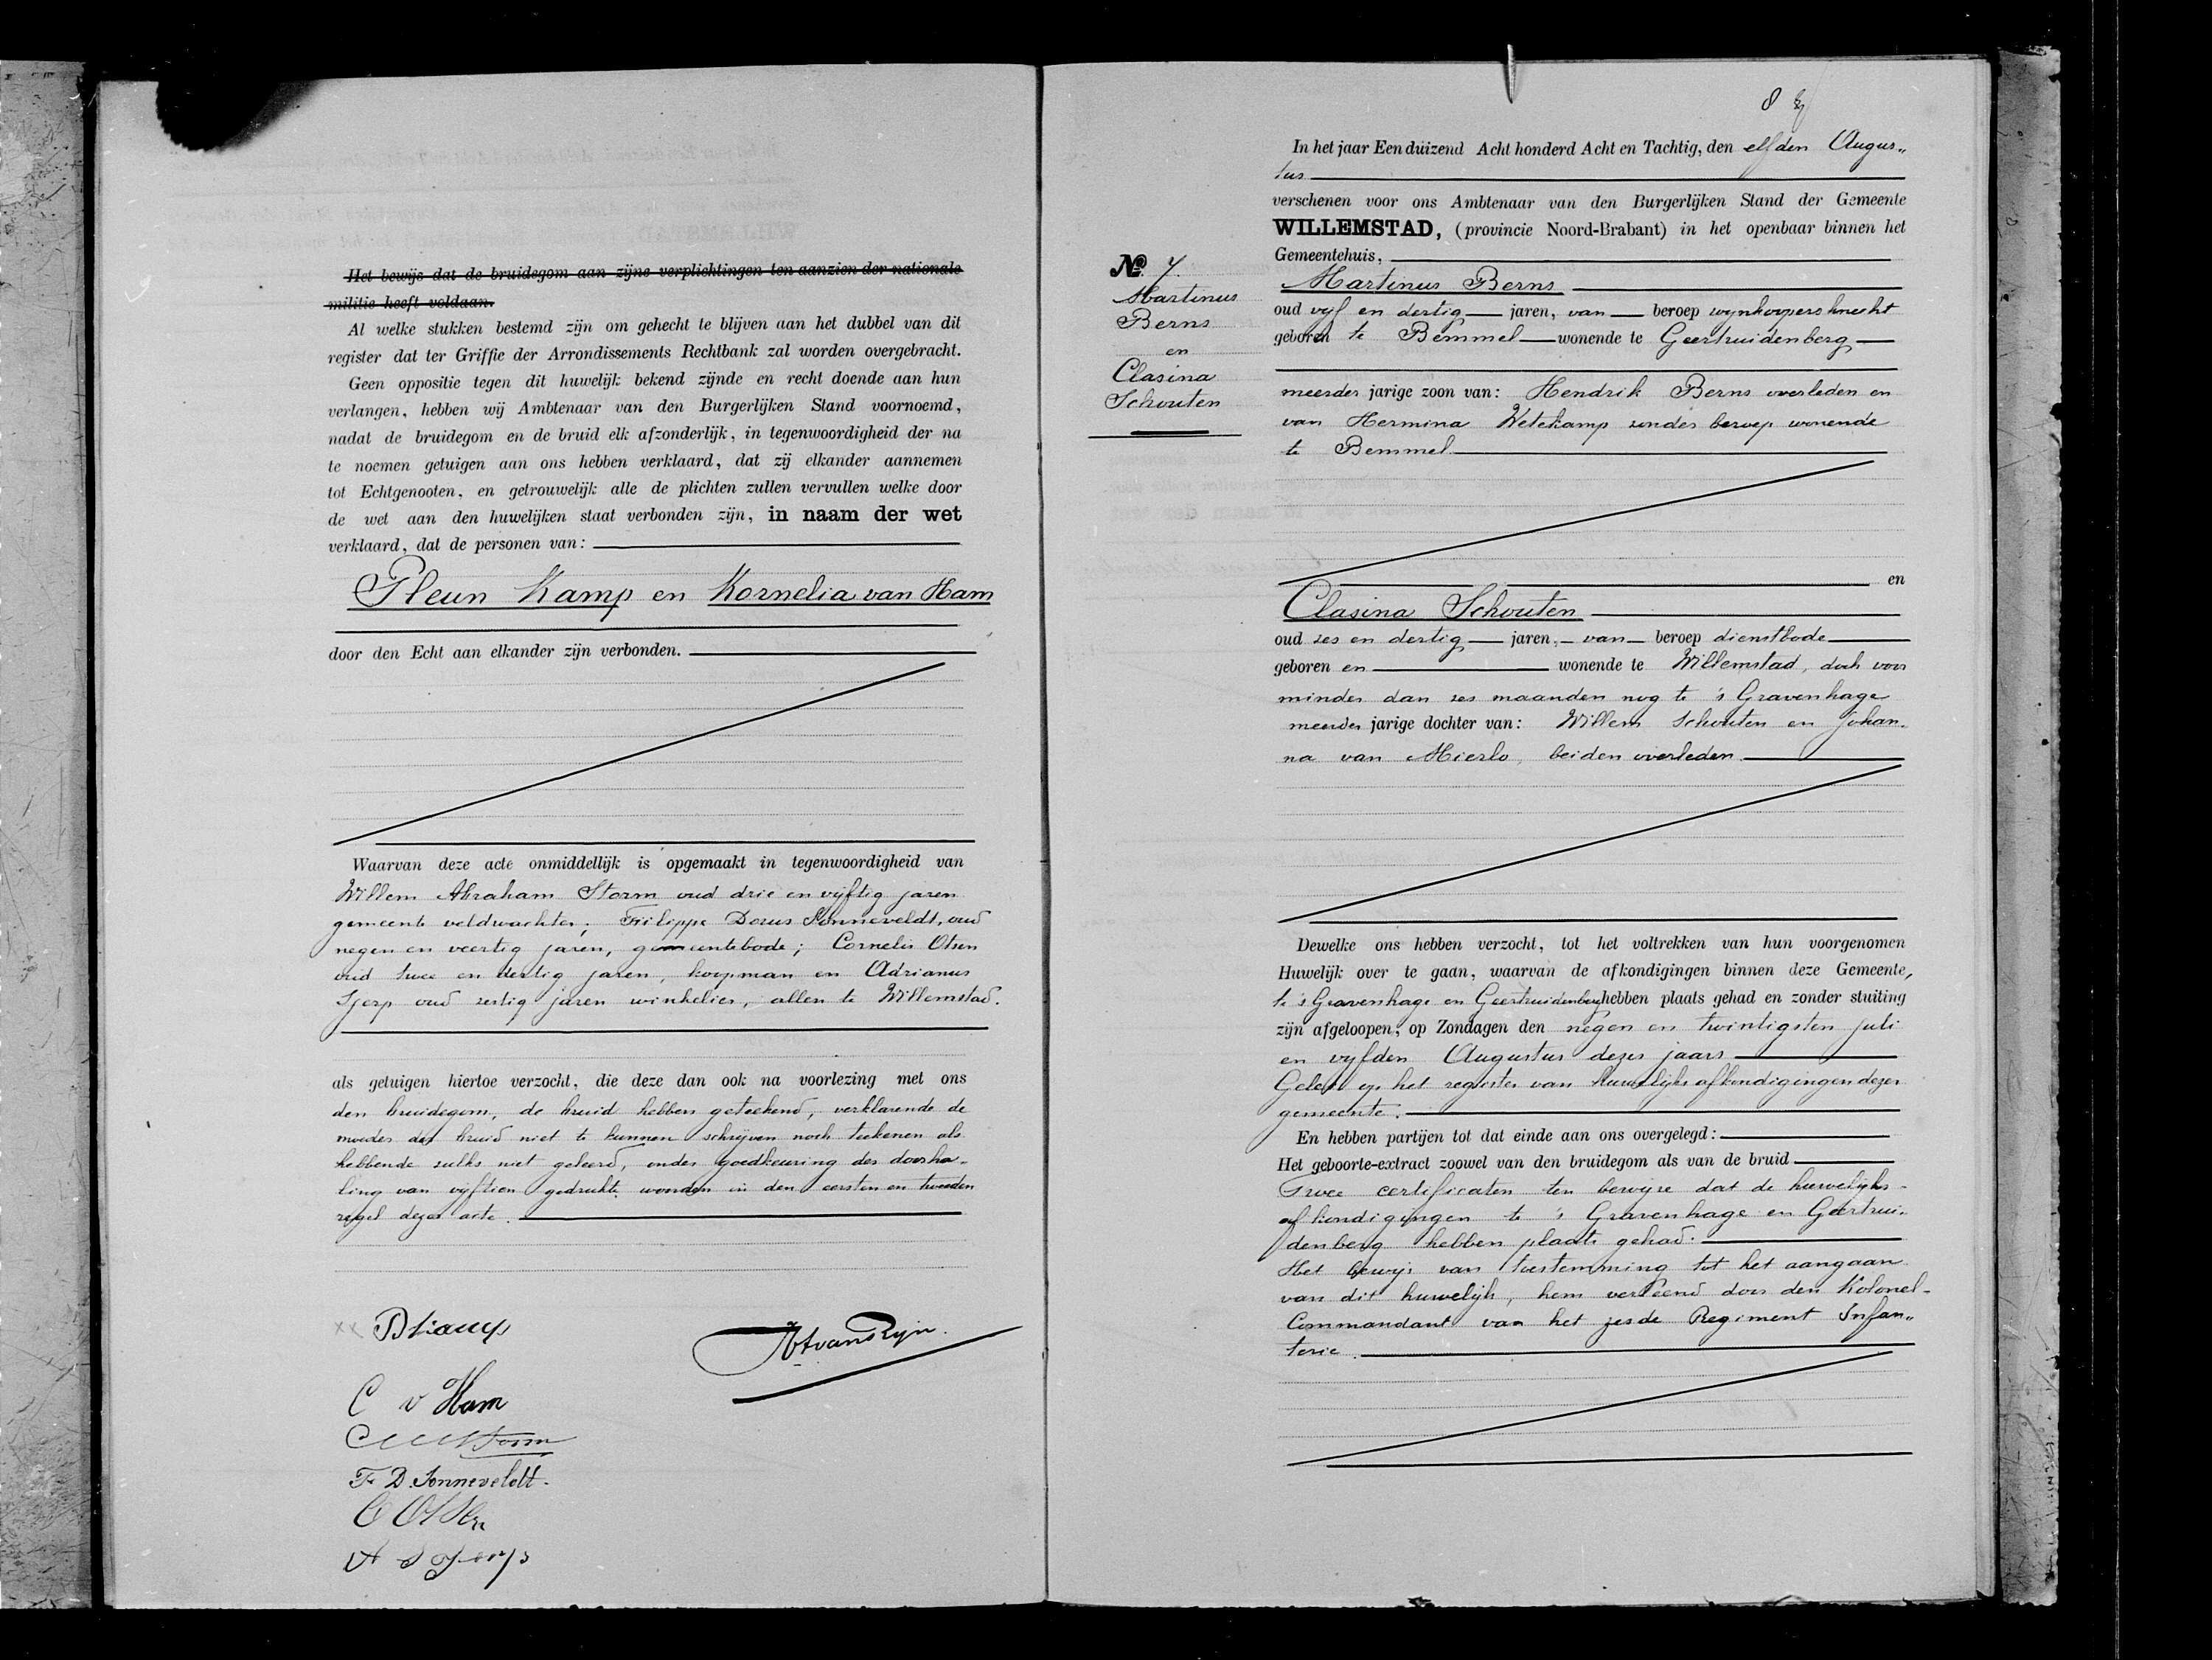 Het bewijs dat de bruidegom aan zijne verplichtingen ten aanzien der nationale
militie heeft voldaan.
Al welke stukken bestemd zijn om gehecht te blijven aan het dubbel van dit
register dat ter Griffie der Arrondissements Rechtbank zal worden overgebracht.
Geen oppositie tegen dit huwelijk bekend zijnde en recht doende aan hun
verlangen, hebben wij Ambtenaar van den Burgerlijken Stand voornoemd,
nadat de bruidegom en de bruid elk afzonderlijk, in tegenwoordigheid der na
te noemen getuigen aan ons hebben verklaard, dat zij elkander aannemen
tot Echtgenooten, en getrouwelijk alle de plichten zullen vervullen welke door
de wet aan den huwelijken staat verbonden zijn, in naam der wet
verklaard, dat de personen van:
Pleun Kamp en Kornelia van Ham
door den Echt aan elkander zijn verbonden.
Waarvan deze acte onmiddellijk is opgemaakt in tegenwoordigheid van
Willem Abraham Storm oud drie en vijftig jaren
gemeente veldwachter; Filippe Dorus Sonneveldt, oud
negen en veertig jaren, gemeentebode; Cornelis Otsen
oud twee en dertig jaren, koopman en Adrianus
Sjerp oud zestig jaren winkelier, allen te Willemstad.
als getuigen hiertoe verzocht, die deze dan ook na voorlezing met ons
den bruidegom, de bruid hebben geteekend, verklarende de
moeder der bruid niet te kunnen schrijven noch teekenen als
hebbende zulks niet geleerd, onder goedkeuring der doorha-
ling van vijftien gedrukte woorden in den eersten en tweeden
regel dezer acte.
xx P Kamp
van Rijn.
C v Ham
Storm
F. D. Sonneveldt.
C Otsen
A Sjerp
8
In het jaar Een duizend Acht honderd Acht en Tachtig, den elfden Augus„
tus
verschenen voor ons Ambtenaar van den Burgerlijken Stand der Gemeente
WILLEMSTAD, (provincie Noord-Brabant) in het openbaar binnen het
Gemeentehuis,
No. 7.
Martinus
Berns
en
Clasina
Schouten
Martinus Berns
oud vijf en dertig jaren, van beroep wijnkoopersknecht
geboren te Bemmel wonende te Geertruidenberg
meerder jarige zoon van: Hendrik Berns overleden en
van Hermina Wetekamp zonder beroep wonende
te Bemmel
en
Clasina Schouten
oud zes en dertig jaren, van beroep dienstbode
geboren en wonende te Willemstad, doch voor
minder dan zes maanden nog te 's Gravenhage
meerder jarige dochter van: Willem Schouten en Johan-
na van Mierlo, beiden overleden
Dewelke ons hebben verzocht, tot het voltrekken van hun voorgenomen
Huwelijk over te gaan, waarvan de afkondigingen binnen deze Gemeente,
te 's Gravenhage en Geertruidenberg hebben plaats gehad en zonder stuiting
zijn afgeloopen, op Zondagen den negen en twintigsten Juli
en vijfden Augustus dezes jaars
Gelet op het register van huwelijks afkondigingen dezer
gemeente.
En hebben partijen tot dat einde aan ons overgelegd:
Het geboorte-extract zoowel van den bruidegom als van de bruid
Twee certificaten ten bewijze dat de huwelijks-
afkondigingen te 's Gravenhage en Geertrui-
denberg hebben plaats gehad.
Het bewijs van toestemming tot het aangaan
van dit huwelijk, hem verleend door den Kolonel-
Commandant van het zesde Regiment Infan„
terie.